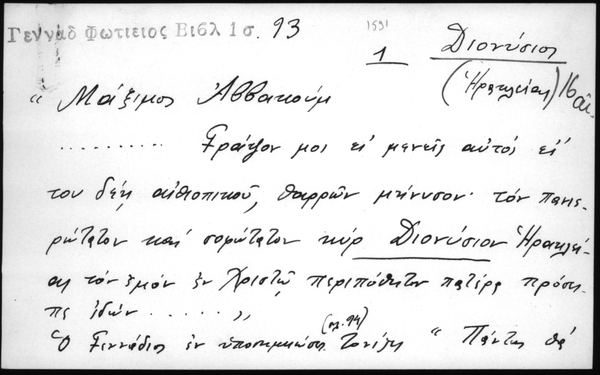 Γεννάδ Φωτιειος Βιβλ 1 σ. 93
1591
1 Διονύσιος
(Ἡρακλείας) 16 αἰ.
" Μάξιμος Ἀββακούμ
......... Γράψον μοι εἰ μενεῖς αὐτός εἰ
του δεῖ, αἰθιοπικοῦ, θαρρῶν μήνυσον· τόν πανιε-
ρώτατον καί σοφώτατον κύρ Διονύσιον Ἡρακλεί-
ας τόν ἐμόν ἐν Χριστῷ περιπόθητον πατέρα πρόσει-
πε ἰδών ...... "
(σελ. 94)
Ὁ Γεννάδιος ἐν ὑποσημειώσει τονίζει " Πάντως θά